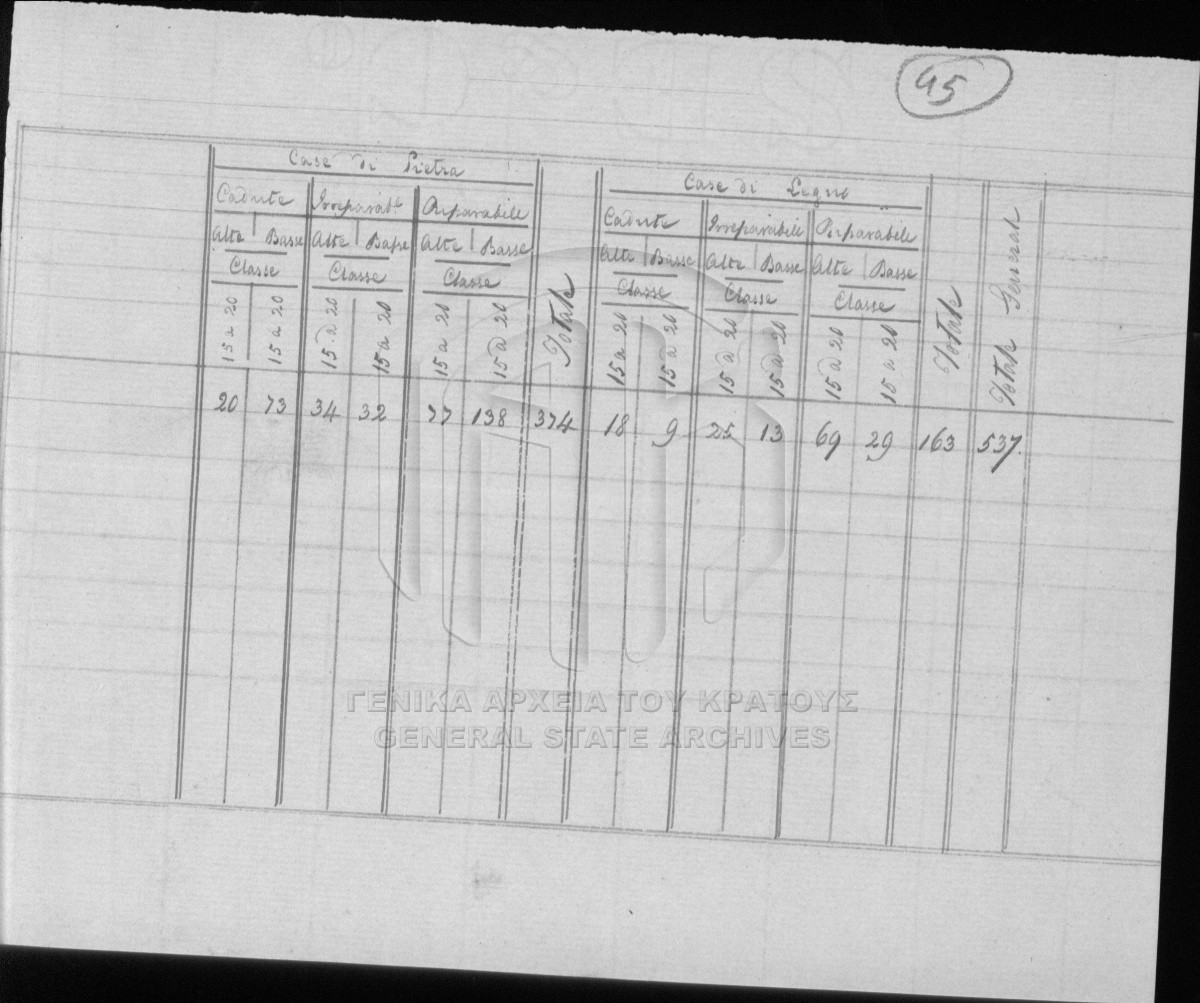 45
Case di Pietra
Case di Legno
Cadute Irreparabile Riparabile
Cadute Irreparabile Riparabile
Alte Basse Alte Basse Alte Basse
Alte Basse Alte Basse Alte Basse
Classe Classe Classe
Classe Classe Classe
15 a 20 15 a 20 15 a 20 15 a 20 15 a 20 15 a 20 Totale
15 a 20 15 a 20 15 a 20 15 a 20 15 a 20 15 a 20 Totale Totale Generale
20 73 34 32 77 138 374 18 9 25 13 69 29 163 537.
ΓΕΝΙΚΑ ΑΡΧΕΙΑ ΤΟΥ ΚΡΑΤΟΥΣ
GENERAL STATE ARCHIVES